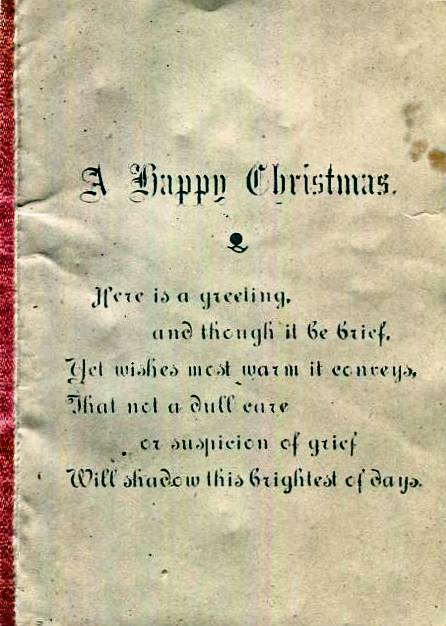 A Happy Christmas.
Here is a greeting,
and though it be brief,
Yet wishes most warm it conveys,
That not a dull care
or suspicion of grief
Will shadow this brightest of days.